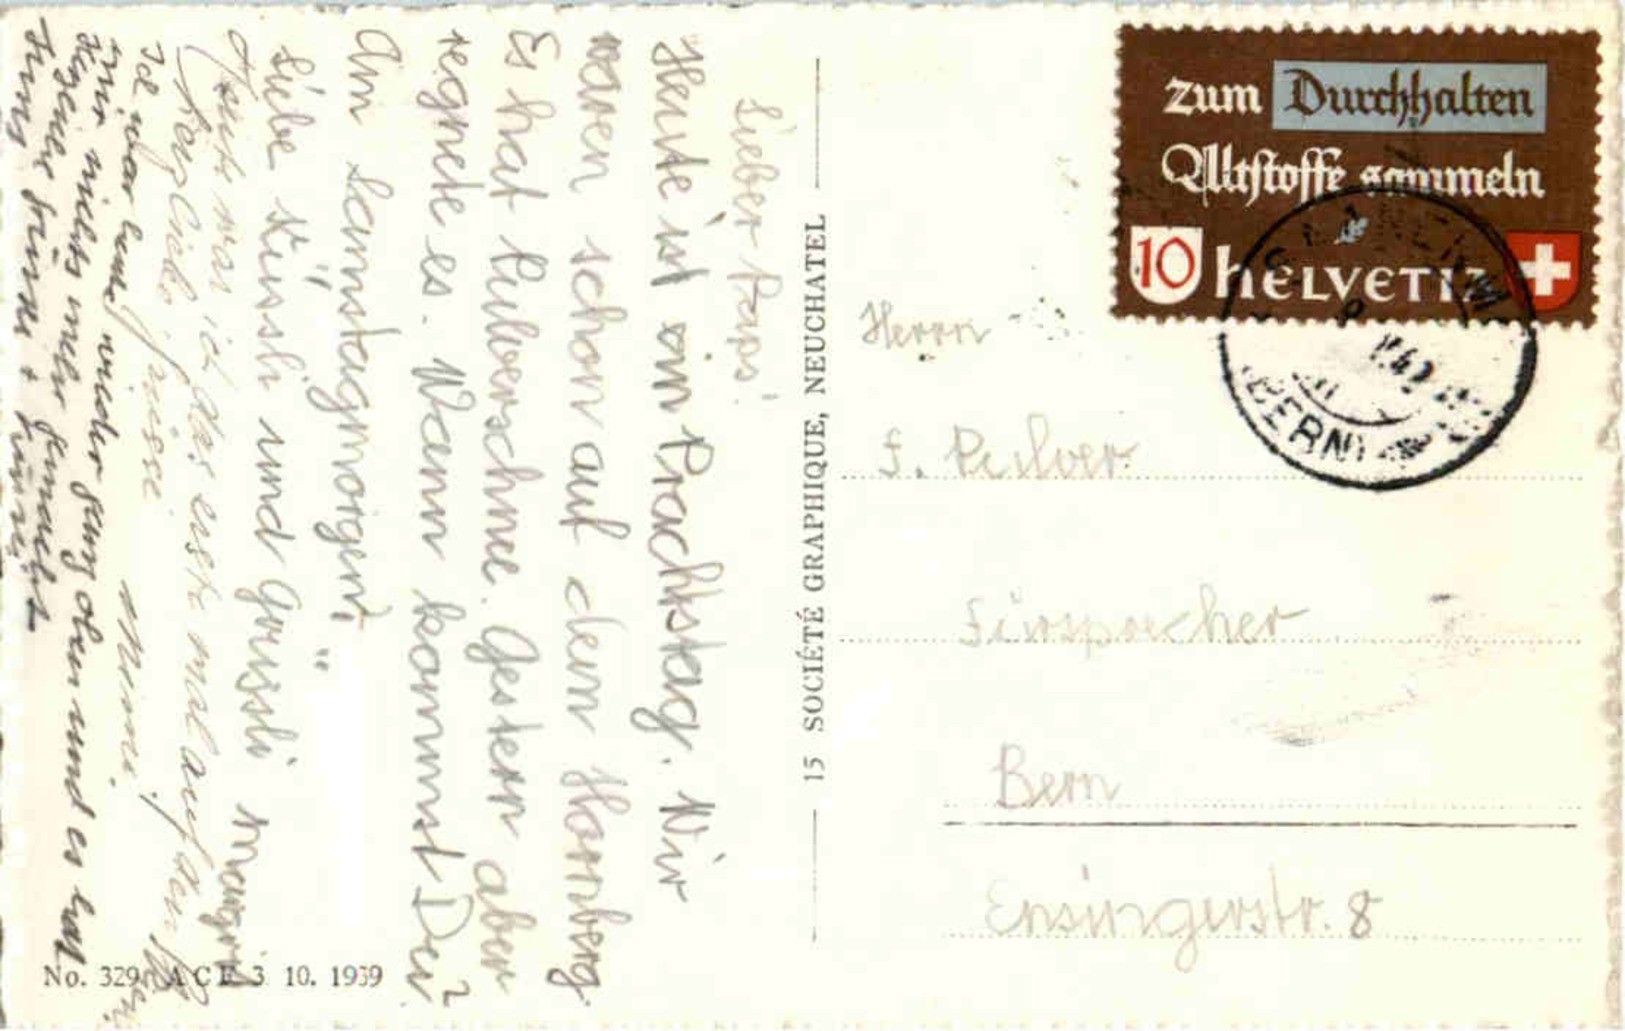 Lieber Paps!
Heute ist ein Prachtstag. Wir
waren schon auf dem Hornberg.
Es hat Pulverschnee. Gestern aber
regnete es. Wann kommst Du?
Am Samstagmorgen?
Liebe Küssli und Grüssli Margrit
Heute war ich das erste mal auf dem
Herzliche Grüsse Mimi.
Ich war heute wieder ganz oben und es hat
mir nichts mehr gemacht.
15 SOCIÉTÉ GRAPHIQUE, NEUCHATEL
No. 329 ACF 3 10. 1939
zum Durchhalten
Altstoffe sammeln
10 HELVETIA
BERN
Herrn
F. Pulver
Fürsprecher
Bern
Ensingerstr. 8